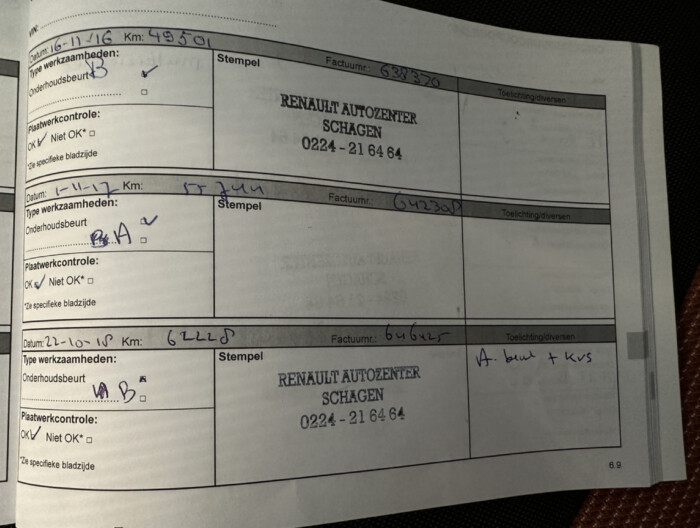 VIN:
Datum: 16-11-'16 Km: 49501 Factuurnr.: 638320 Toelichting/diversen
Type werkzaamheden:
Onderhoudsbeurt B
Stempel
RENAULT AUTOZENTER
SCHAGEN
0224 - 21 64 64
Plaatwerkcontrole:
OK Niet OK*
*Zie specifieke bladzijde
Datum: 1-11-17 Km: 55744 Factuurnr.: Toelichting/diversen
Type werkzaamheden:
Onderhoudsbeurt
A
Stempel
Plaatwerkcontrole:
OK Niet OK*
*Zie specifieke bladzijde
Datum: 22-10-18 Km: 62228 Factuurnr.: 646425 Toelichting/diversen
Type werkzaamheden:
Onderhoudsbeurt
B
Stempel
RENAULT AUTOZENTER
SCHAGEN
0224 - 21 64 64
A. beurt + KVS
Plaatwerkcontrole:
OK Niet OK*
*Zie specifieke bladzijde
6.9